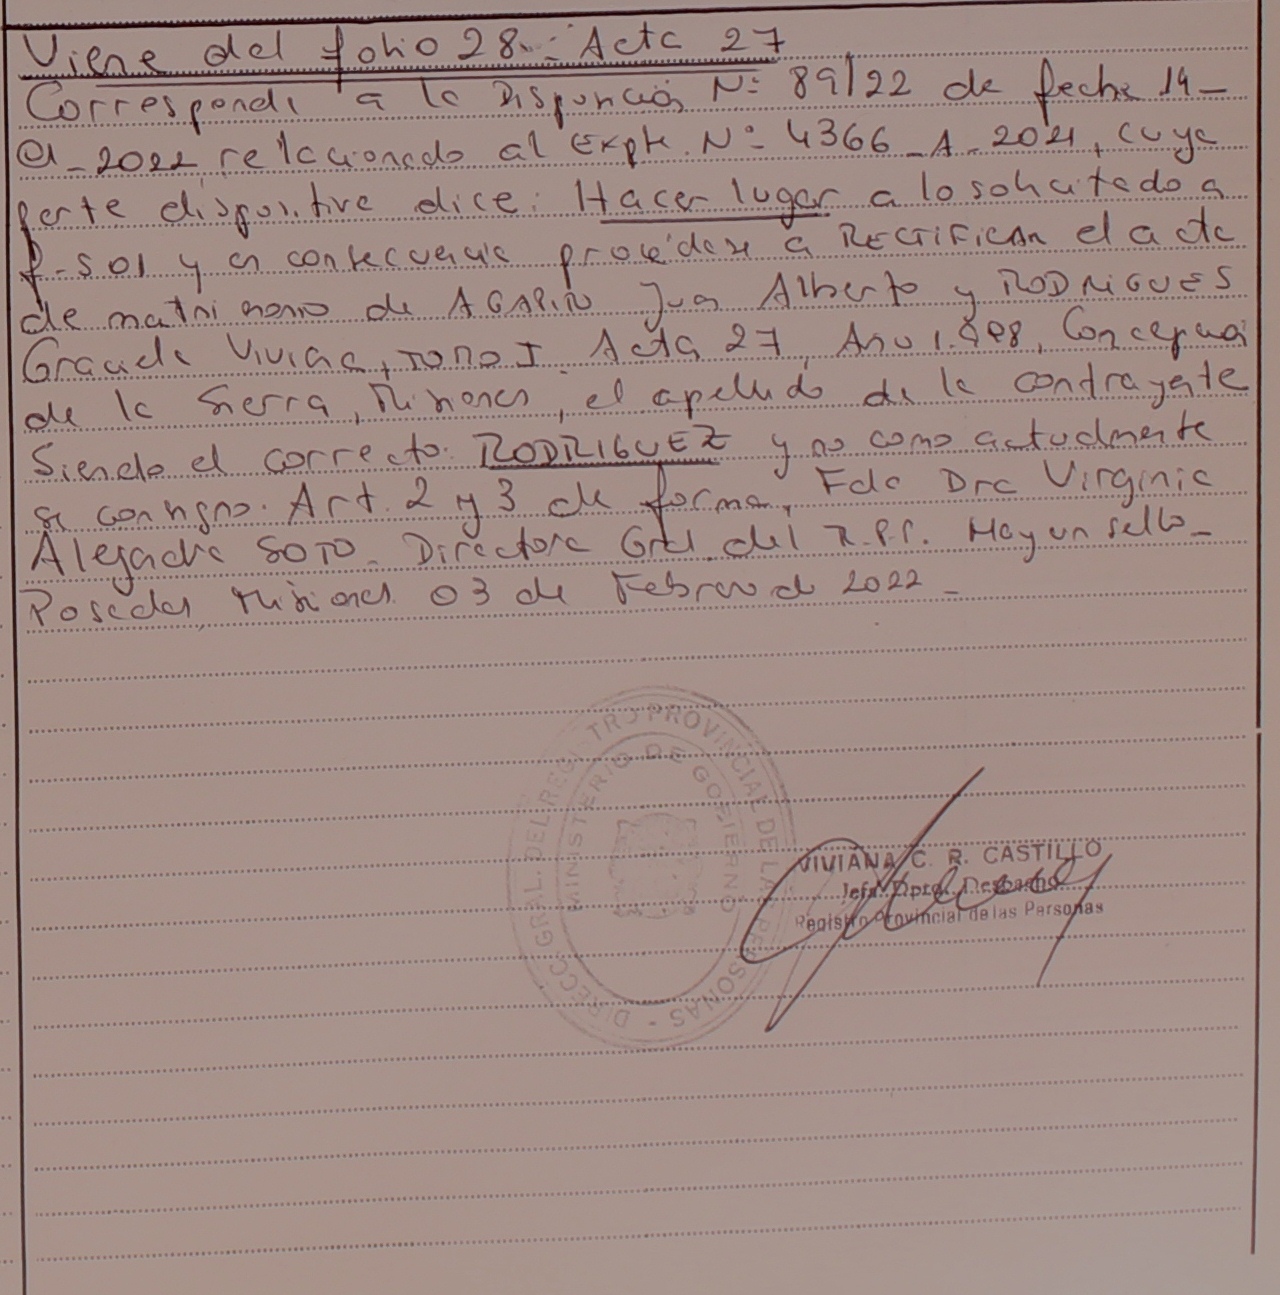 Viene del folio 28.- Acta 27
Corresponde a la Disposición Nº 89/22 de fecha 14-
01-2022 relacionado al Expte. Nº 4366-A-2021, cuya
parte dispositiva dice: Hacer lugar a lo solicitado a
f-s 01 y en consecuencia procédase a RECTIFICAR el acta
de matrimonio de AGAPITO Juan Alberto y RODRIGUES
Graciela Viviana, TOMO I Acta 27, Año 1.998, Concepción
de la Sierra, Misiones, el apellido de la contrayente
Siendo el correcto RODRIGUEZ y no como actualmente
se consigno. Art. 2 y 3 de forma, Fdo Dra Virginia
Alejandra SOTO - Directora Gral del R.P.P. Hay un sello -
Posadas, Misiones 03 de Febrero de 2022 -
DIRECC. GRAL. DEL REGISTRO PROVINCIAL DE LAS PERSONAS -
MINISTERIO DE GOBIERNO
VIVIANA C. R. CASTILLO
Jefa Dpto. Despacho
Registro Provincial de las Personas